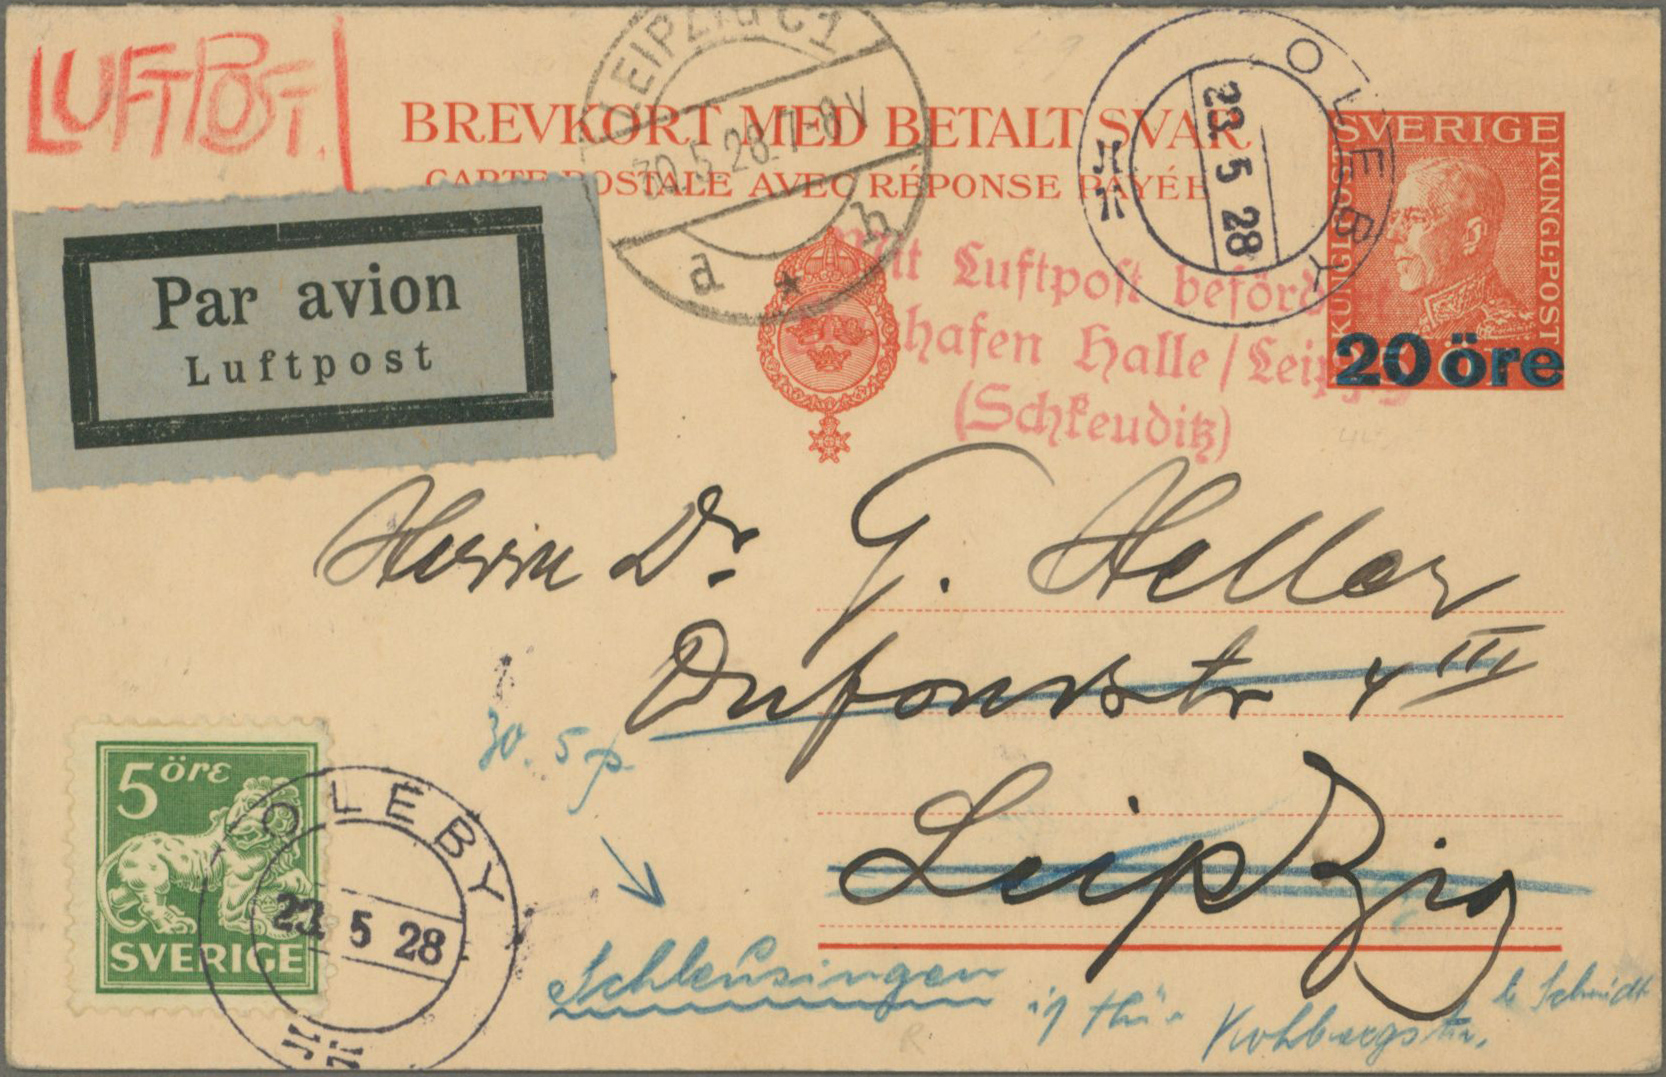 LUFTPOST.
LEIPZIG C1
30.5.28.7-8V
a * h
BREVKORT MED BETALT SVAR
CARTE POSTALE AVEC RÉPONSE PAYÉE
OLEBY
23 5 28
SVERIGE
KUNGL.POST
KUNGL.POST
20 öre
Par avion
Luftpost
Mit Luftpost beförd
hafen Halle/Leipzig
(Schkeuditz)
Herrn Dr. G. Heller
Dufourstr 4 III
Leipzig
30. 5
5 öre
SVERIGE
OLEBY
23 5 28
Schleusingen
i/ Thür
b Schmidt